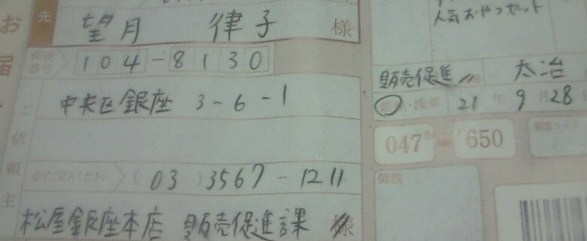 お届
先
望月 律子 様
郵便番号 104-8130
中央区銀座 3-6-1
ご依頼主
(03)3567-1211
松屋銀座本店 販売促進課 様
人気おやつセット
販売促進 太治
21年9月28
047 650
個数